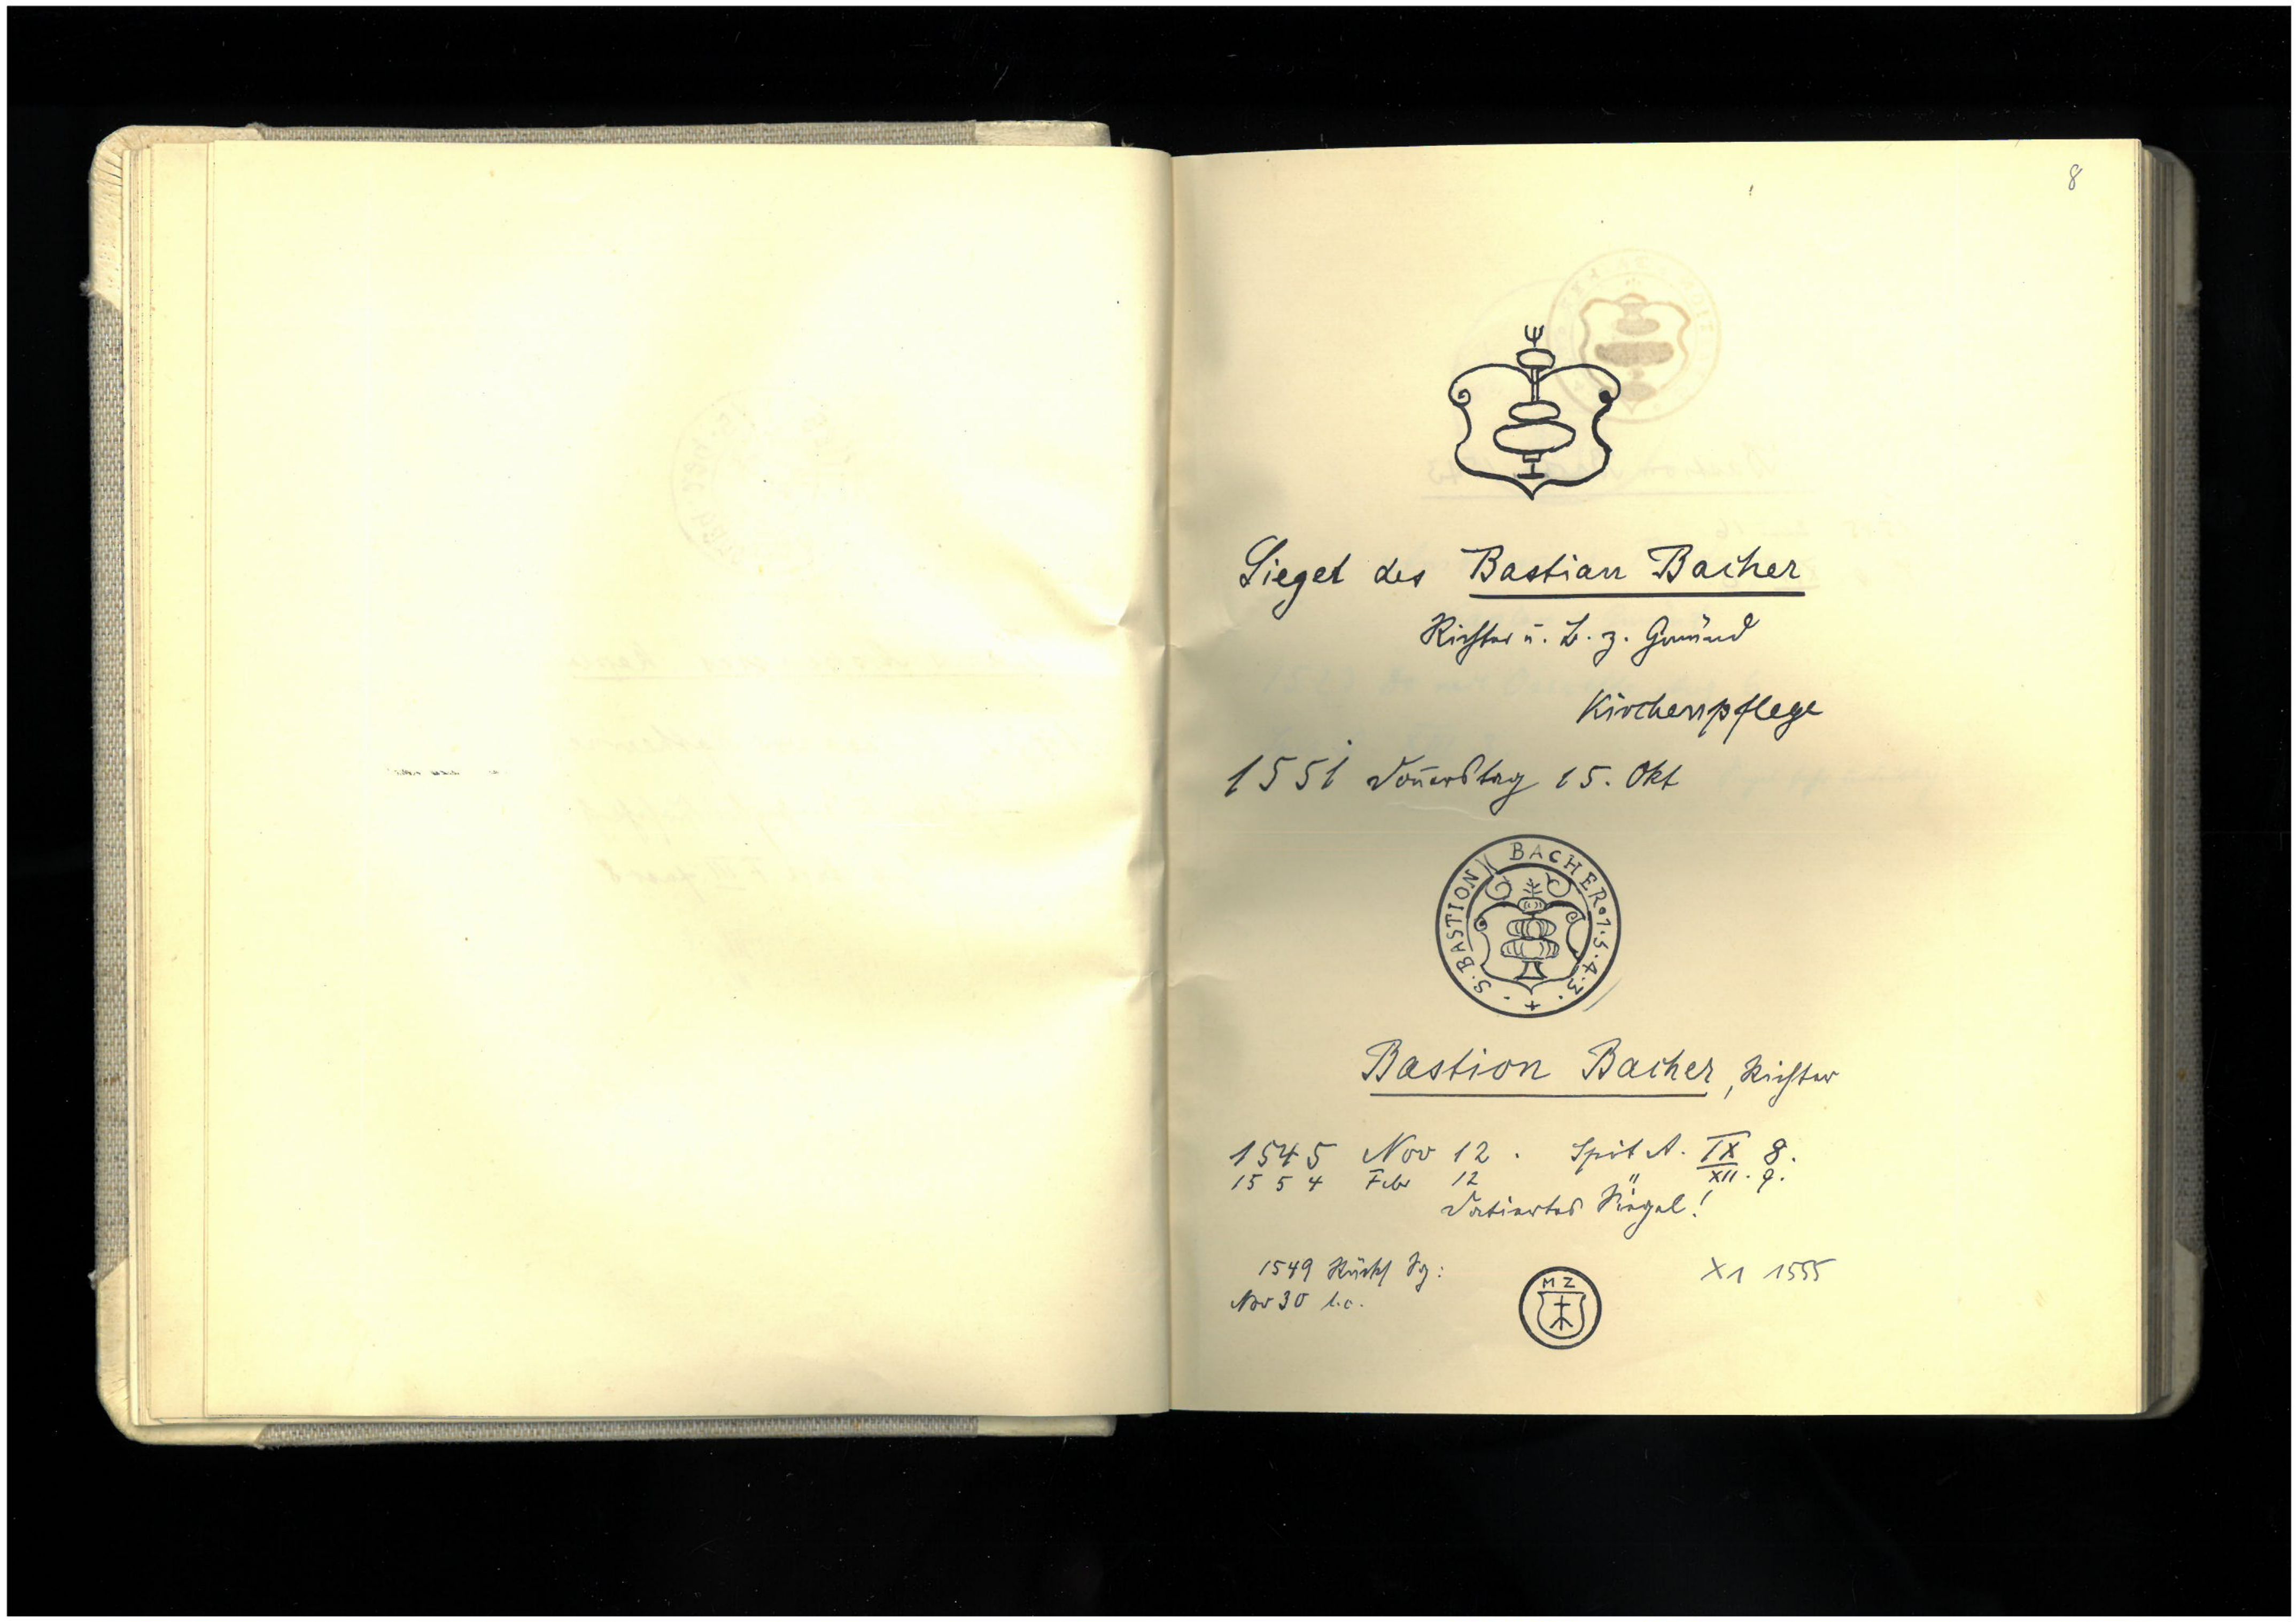 8
Siegel des Bastian Bacher
Richter u. B. z. Gmünd
Kirchenpflege
1551 Donnerstag 15. Okt
S. BASTION BACHER. 1. 5. 4. 3. +
Bastion Bacher, Richter
1545 Nov 12. Spit A. IX 8.
1554 Febr 12 " XII. 9.
Datiertes Siegel!
1549 Rücks Sg:
Nov 30 l.c.
X1 1555
MZ